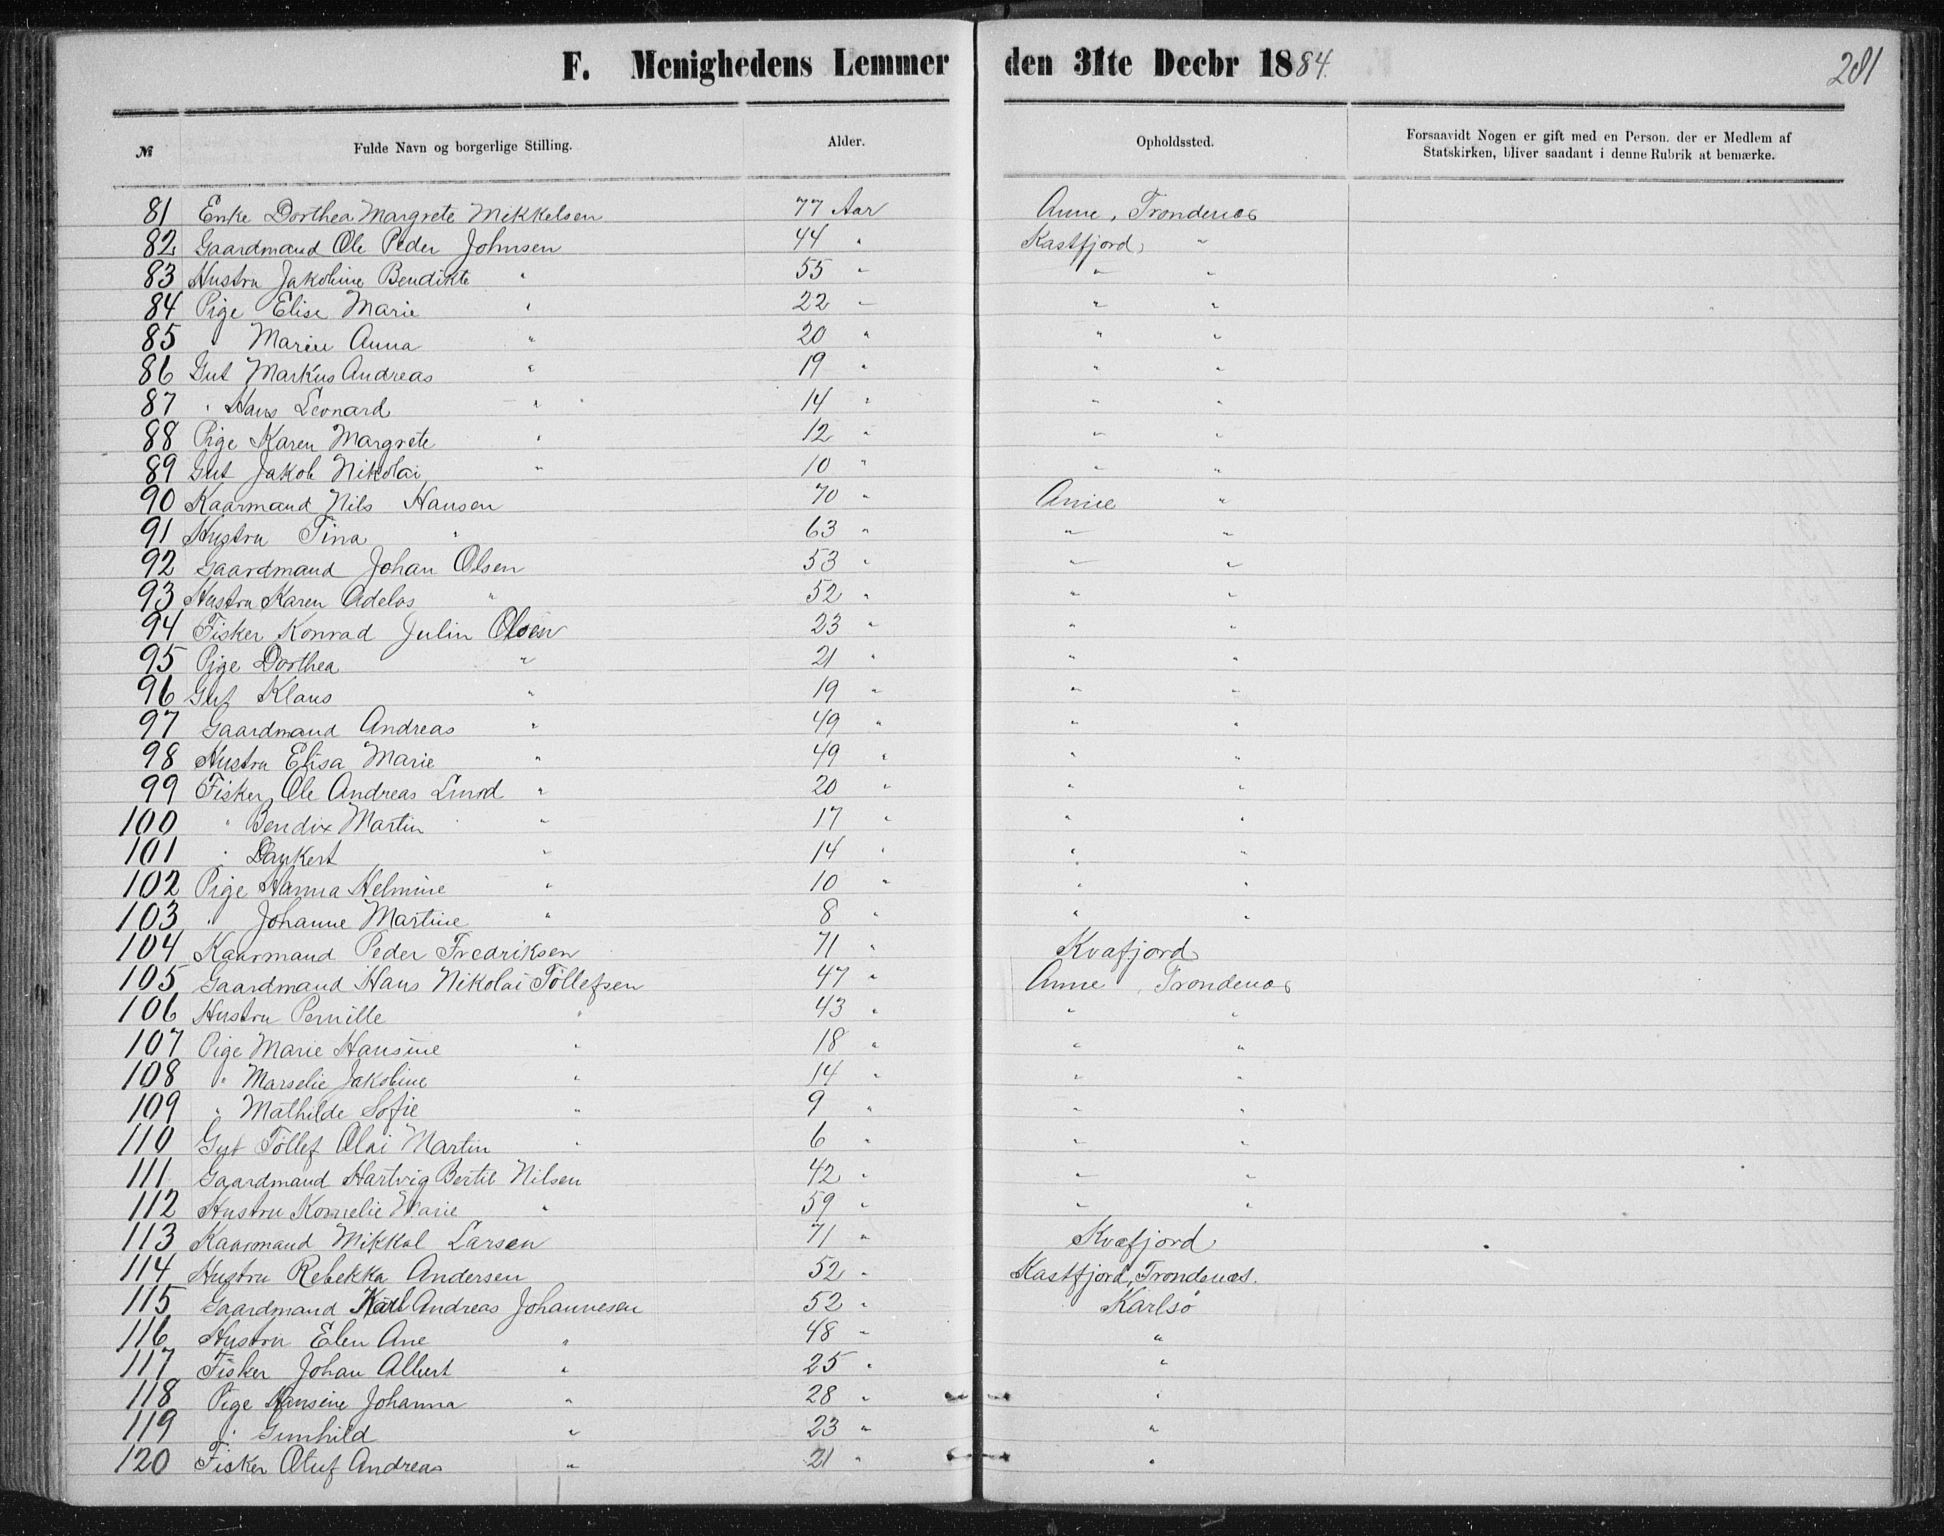 F. Menighedens Lemmer den 31te Decbr 1884. 281
№ Fulde Navn og borgerlige Stilling. Alder. Opholdssted. Forsaavidt Nogen er gift med en Person, der er Medlem af
Statskirken, bliver saadant i denne Rubrik at bemærke.
81 Enke Dorthea Margrete Mikkelsen 77 Aar Anne, Trondenæs
82 Gaardmand Ole Peder Johnsen 44 " Kastfjord, "
83 Hustru Jakobine Bendikte " 55 " " "
84 Pige Elise Marie " 22 " " "
85 " Maren Anna " 20 " " "
86 Gut Markus Andreas " 19 " " "
87 " Hans Leonard " 14 " " "
88 Pige Karen Margrete " 12 " " "
89 Gut Jakob Nikolai " 10 " " "
90 Kaarmand Nils Hansen 70 " Anne "
91 Hustru Tina " 63 " " "
92 Gaardmand Johan Olsen 53 " " "
93 Hustru Karen Adelos " 52 " " "
94 Fisker Konrad Julin Olsen 23 " " "
95 Pige Dorthea " 21 " " "
96 Gut Klaus " 19 " " "
97 Gaardmand Andreas " 49 " " "
98 Hustru Elisa Marie " 49 " " "
99 Fisker Ole Andreas " 20 " " "
100 " Bendix Martin " 17 " " "
101 " Dankert " 14 " " "
102 Pige Hanna Helmine " 10 " " "
103 " Johanne Martine " 8 " " "
104 Kaarmand Peder Fredriksen 71 " Kvafjord
105 Gaardmand Hans Nikolai Tollefsen 47 " Anne, Trondenæs
106 Hustru Pernille " 43 " " "
107 Pige Marie Hansine " 18 " " "
108 " Marselie Jakobine " 14 " " "
109 " Mathilde Sofie " 9 " " "
110 Gut Tollef Olai Martin " 6 " " "
111 Gaardmand Hartvig Bertil Nilsen 42 " " "
112 Hustru Kornelie Marie " 59 " " "
113 Kaarmand Mikkal Larsen 71 " Kvæfjord
114 Hustru Rebekka Andersen 52 " Kastfjord, Trondenæs.
115 Gaardmand Karl Andreas Johannesen 52 " Karlsö
116 Hustru Elen Ane " 48 " "
117 Fisker Johan Albert " 25 " "
118 Pige Hansine Johanna " 28 " "
119 " Gunhild " 23 " "
120 Fisker Oluf Andreas " 21 " "